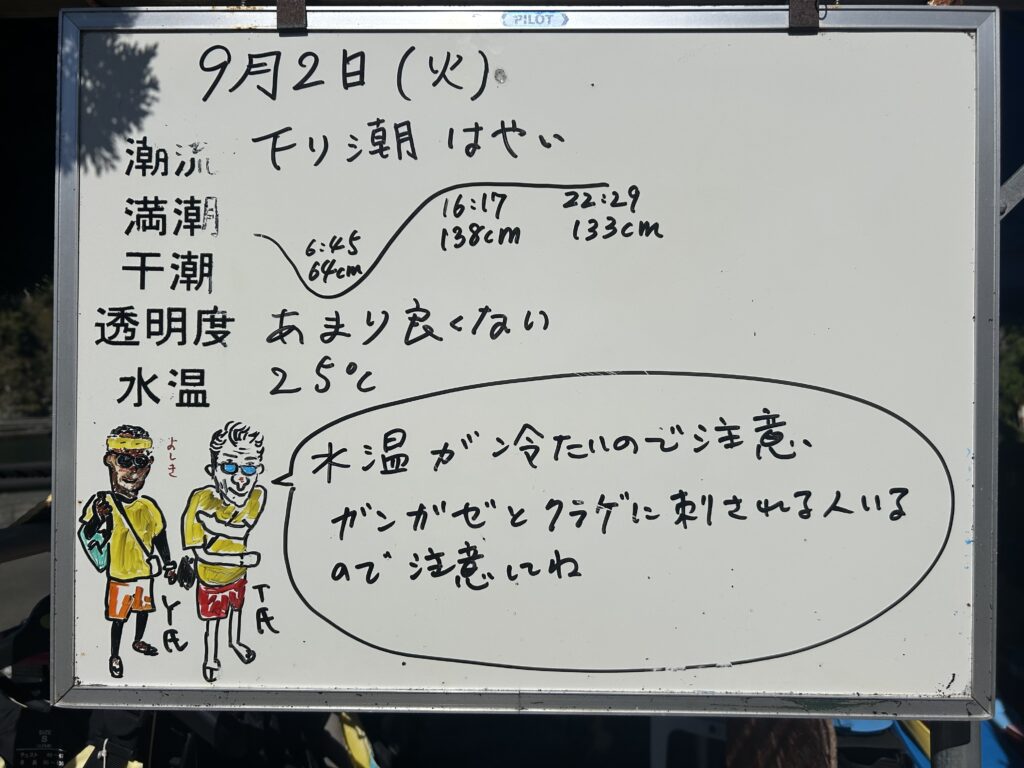 PILOT
9月2日(火)
潮流 下り潮 はやい
満潮 16:17 22:29
138cm 133cm
干潮 6:45
64cm
透明度 あまり良くない
水温 25℃
水温が冷たいので注意、
ガンガゼとクラゲに刺される人いる
ので注意してね
よしき
Y氏
T氏
SIZE
S